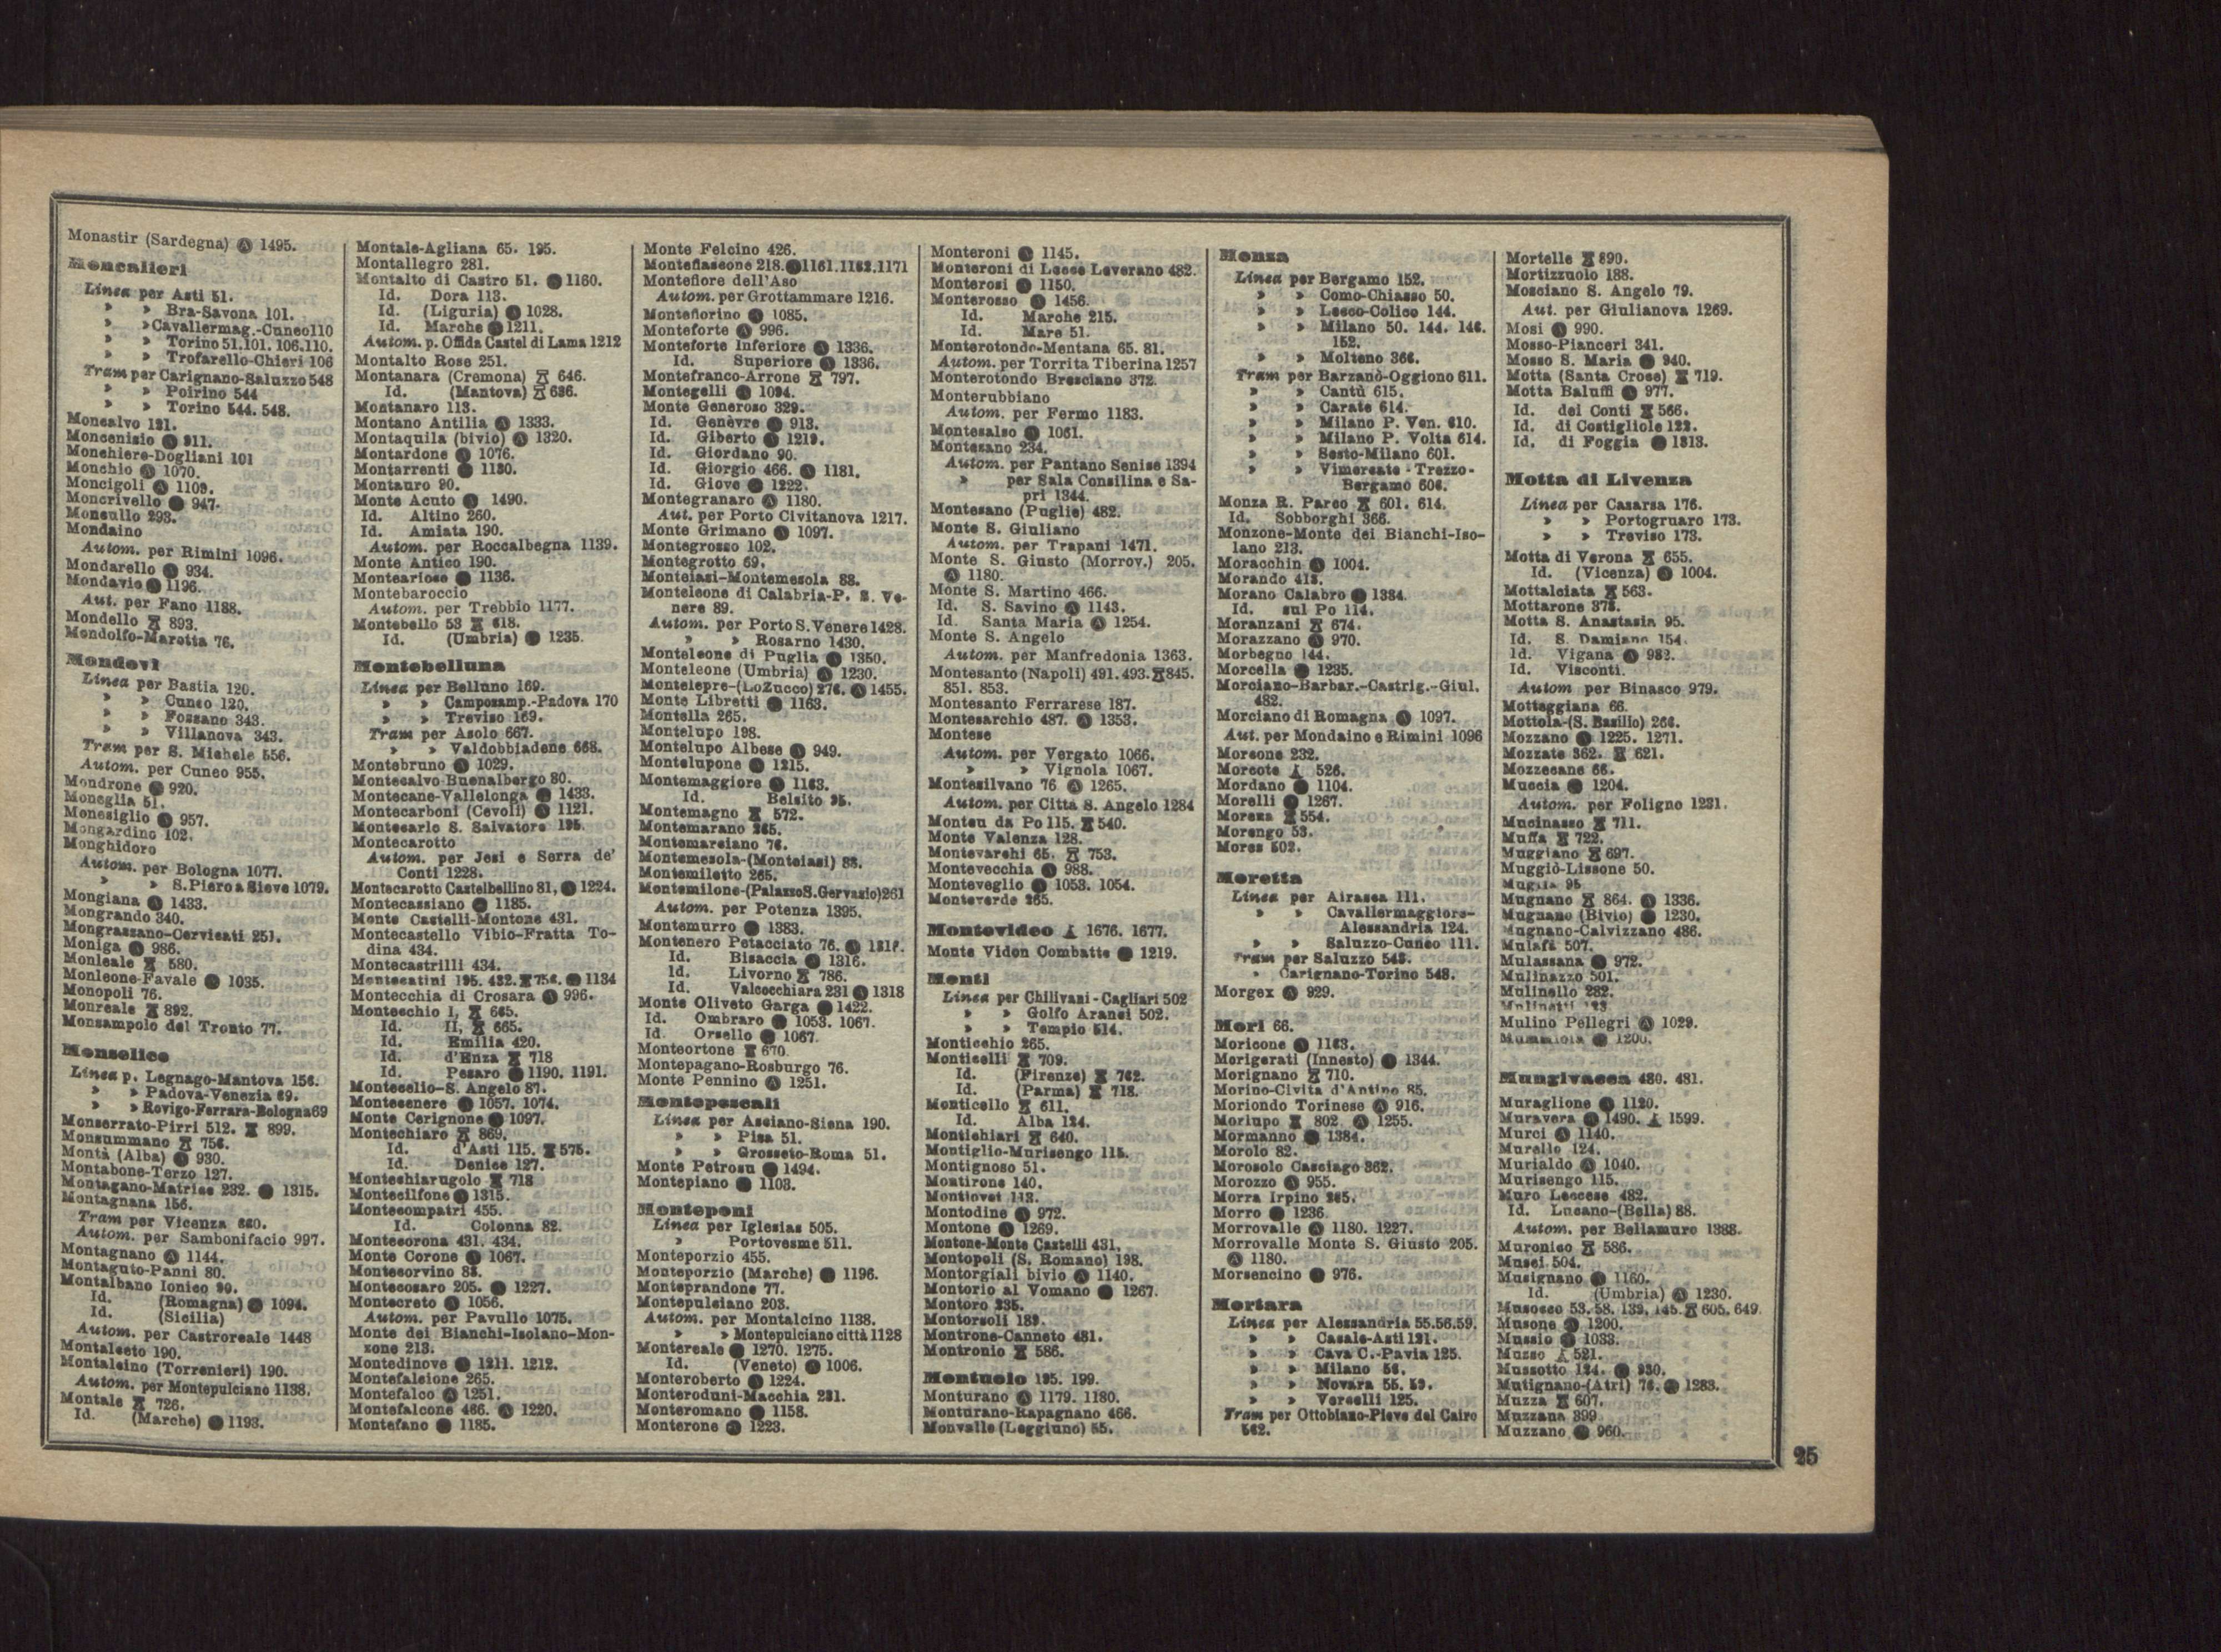 Monastir (Sardegna) Ⓐ 1495.
Moncalieri
Linea per Asti 51.
» » Bra-Savona 101.
» » Cavallermag.-Cuneo 110
» » Torino 51. 101. 106. 110.
» » Trofarello-Chieri 106
Tram per Carignano-Saluzzo 548
» » Poirino 544
» » Torino 544. 548.
Moncalvo 121.
Moncenisio Ⓐ 911.
Monchiero-Dogliani 101
Monchio Ⓐ 1070.
Moncigoli Ⓐ 1109.
Moncrivello Ⓐ 947.
Moncullo 293.
Mondaino
Autom. per Rimini 1096.
Mondarello Ⓐ 934.
Mondavio Ⓐ 1196.
Aut. per Fano 1188.
Mondello 893.
Mondolfo-Marotta 76.
Mondovì
Linea per Bastia 120.
» » Cuneo 120.
» » Fossano 343.
» » Villanova 343.
Tram per S. Michele 556.
Autom. per Cuneo 955.
Mondrone Ⓐ 920.
Moneglia 51.
Monesiglio Ⓐ 957.
Mongardino 102.
Monghidoro
Autom. per Bologna 1077.
» » S. Piero a Sieve 1079.
Mongiana Ⓐ 1433.
Mongrando 340.
Mongrassano-Cervicati 251.
Moniga Ⓐ 986.
Monleale 580.
Monleone-Favale Ⓐ 1035.
Monopoli 76.
Monreale 892.
Monsampolo del Tronto 77.
Monselice
Linea p. Legnago-Mantova 156.
» » Padova-Venezia 69.
» » Rovigo-Ferrara-Bologna 69
Monserrato-Pirri 512. 899.
Monsummano 756.
Montà (Alba) Ⓐ 930.
Montabone-Terzo 127.
Montagano-Matrice 232. Ⓐ 1315.
Montagnana 156.
Tram per Vicenza 660.
Autom. per Sambonifacio 997.
Montagnano Ⓐ 1144.
Montaguto-Panni 80.
Montalbano Ionico 90.
Id. (Romagna) Ⓐ 1094.
Id. (Sicilia)
Autom. per Castroreale 1448
Montalceto 190.
Montalcino (Torrenieri) 190.
Autom. per Montepulciano 1138.
Montale 726.
Id. (Marche) Ⓐ 1193.
Montale-Agliana 65. 195.
Montallegro 281.
Montalto di Castro 51. Ⓐ 1160.
Id. Dora 113.
Id. (Liguria) Ⓐ 1028.
Id. Marche Ⓐ 1211.
Autom. p. Offida Castel di Lama 1212
Montalto Rose 251.
Montanara (Cremona) 646.
Id. (Mantova) 636.
Montanaro 113.
Montano Antilia Ⓐ 1333.
Montaquila (bivio) Ⓐ 1320.
Montardone Ⓐ 1076.
Montarrenti Ⓐ 1130.
Montauro 90.
Monte Acuto Ⓐ 1490.
Id. Altino 260.
Id. Amiata 190.
Autom. per Roccalbegna 1139.
Monte Antico 190.
Montearioso Ⓐ 1136.
Montebaroccio
Autom. per Trebbio 1177.
Montebello 53 618.
Id. (Umbria) Ⓐ 1235.
Montebelluna
Linea per Belluno 169.
» » Camposamp.-Padova 170
» » Treviso 169.
Tram per Asolo 667.
» » Valdobbiadene 668.
Montebruno Ⓐ 1029.
Montecalvo Buonalbergo 80.
Montecane-Vallelonga Ⓐ 1433.
Montecarboni (Cevoli) Ⓐ 1121.
Montecarlo S. Salvatore 195.
Montecarotto
Autom. per Jesi e Serra de'
Conti 1228.
Montecarotto Castelbellino 81, Ⓐ 1224.
Montecassiano Ⓐ 1185.
Monte Castelli-Montone 431.
Montecastello Vibio-Fratta To-
dina 434.
Montecastrilli 434.
Montecatini 195. 432. 756. Ⓐ 1134
Montecchia di Crosara Ⓐ 996.
Montecchio I, 665.
Id. II, 665.
Id. Emilia 420.
Id. d'Enza 718
Id. Pesaro Ⓐ 1190. 1191.
Montecelio-S. Angelo 87.
Montecenere Ⓐ 1057. 1074.
Monte Cerignone Ⓐ 1097.
Montechiaro 869.
Id. d'Asti 115. 575.
Id. Denice 127.
Montechiarugolo 718
Montecilfone Ⓐ 1315.
Montecompatri 455.
Id. Colonna 82.
Montecorona 431. 434.
Monte Corone Ⓐ 1067.
Montecorvino 88.
Montecosaro 205. Ⓐ 1227.
Montecreto Ⓐ 1056.
Autom. per Pavullo 1075.
Monte dei Bianchi-Isolano-Mon-
zone 213.
Montedinove Ⓐ 1211. 1212.
Montefalcione 265.
Montefalco Ⓐ 1251.
Montefalcone 466. Ⓐ 1220.
Montefano Ⓐ 1185.
Monte Felcino 426.
Montefiascone 218. Ⓐ 1161. 1162. 1171
Montefiore dell'Aso
Autom. per Grottammare 1216.
Montefiorino Ⓐ 1085.
Monteforte Ⓐ 996.
Monteforte Inferiore Ⓐ 1336.
Id. Superiore Ⓐ 1336.
Montefranco-Arrone 797.
Montegelli Ⓐ 1094.
Monte Generoso 329.
Id. Genèvre Ⓐ 913.
Id. Giberto Ⓐ 1219.
Id. Giordano 90.
Id. Giorgio 466. Ⓐ 1181.
Id. Giove Ⓐ 1222.
Montegranaro Ⓐ 1180.
Aut. per Porto Civitanova 1217.
Monte Grimano Ⓐ 1097.
Montegrosso 102.
Montegrotto 69.
Monteiasi-Montemesola 88.
Monteleone di Calabria-P. S. Ve-
nere 89.
Autom. per Porto S. Venere 1428.
» » Rosarno 1430.
Monteleone di Puglia Ⓐ 1350.
Monteleone (Umbria) Ⓐ 1230.
Montelepre-(Lo Zucco) 276. Ⓐ 1455.
Monte Libretti Ⓐ 1163.
Montella 265.
Montelupo 198.
Montelupo Albese Ⓐ 949.
Montelupone Ⓐ 1215.
Montemaggiore Ⓐ 1163.
Id. Belsito 95.
Montemagno 572.
Montemarano 265.
Montemarciano 76.
Montemesola-(Monteiasi) 88.
Montemiletto 265.
Montemilone-(Palazzo S. Gervasio) 261
Autom. per Potenza 1395.
Montemurro Ⓐ 1383.
Montenero Petacciato 76. Ⓐ
Id. Bisaccia Ⓐ 1316.
Id. Livorno 786.
Id. Valcocchiara 231 Ⓐ 1318
Monte Oliveto Garga Ⓐ 1422.
Id. Ombraro Ⓐ 1053. 1067.
Id. Orsello Ⓐ 1067.
Monteortone 670.
Montepagano-Rosburgo 76.
Monte Pennino Ⓐ 1251.
Montepescali
Linea per Asciano-Siena 190.
» » Pisa 51.
» » Grosseto-Roma 51.
Monte Petrosu Ⓐ 1494.
Montepiano Ⓐ 1103.
Monteponi
Linea per Iglesias 505.
» Portovesme 511.
Monteporzio 455.
Monteporzio (Marche) Ⓐ 1196.
Monteprandone 77.
Montepulciano 203.
Autom. per Montalcino 1138.
» » Montepulciano città 1128
Montereale Ⓐ 1270. 1275.
Id. (Veneto) Ⓐ 1006.
Monteroberto Ⓐ 1224.
Monteroduni-Macchia 231.
Monteromano Ⓐ 1158.
Monterone Ⓐ 1223.
Monteroni Ⓐ 1145.
Monteroni di Lecce Leverano 482.
Monterosi Ⓐ 1150.
Monterosso Ⓐ 1456.
Id. Marche 215.
Id. Mare 51.
Monterotondo-Mentana 65. 81.
Autom. per Torrita Tiberina 1257
Monterotondo Bresciano 372.
Monterubbiano
Autom. per Fermo 1183.
Montesalso Ⓐ 1061.
Montesano 234.
Autom. per Pantano Senise 1394
» per Sala Consilina e Sa-
pri 1344.
Montesano (Puglie) 482.
Monte S. Giuliano
Autom. per Trapani 1471.
Monte S. Giusto (Morrov.) 205.
Ⓐ 1180.
Monte S. Martino 466.
Id. S. Savino Ⓐ 1143.
Id. Santa Maria Ⓐ 1254.
Monte S. Angelo
Autom. per Manfredonia 1363.
Montesanto (Napoli) 491. 493. 845.
851. 853.
Montesanto Ferrarese 187.
Montesarchio 487. Ⓐ 1353.
Montese
Autom. per Vergato 1066.
» » Vignola 1067.
Montesilvano 76 Ⓐ 1265.
Autom. per Città S. Angelo 1284
Monteu da Po 115. 540.
Monte Valenza 128.
Montevarchi 65. 753.
Montevecchia Ⓐ 988.
Monteveglio Ⓐ 1053. 1054.
Monteverde 265.
Montevideo 1676. 1677.
Monte Vidon Combatte Ⓐ 1219.
Monti
Linea per Chilivani-Cagliari 502
» » Golfo Aranci 502.
» » Tempio 514.
Monticchio 265.
Monticelli 709.
Id. (Firenze) 762.
Id. (Parma) 718.
Monticello 611.
Id. Alba 124.
Montichiari 640.
Montiglio-Murisengo 115.
Montignoso 51.
Montirone 140.
Montiovet 113.
Montodine Ⓐ 972.
Montone Ⓐ 1269.
Montone-Monte Castelli 431.
Montopoli (S. Romano) 198.
Montorgiali bivio Ⓐ 1140.
Montorio al Vomano Ⓐ 1267.
Montoro 235.
Montorsoli 189.
Montrone-Canneto 481.
Montronio 586.
Montuolo 195. 199.
Monturano Ⓐ 1179. 1180.
Monturano-Rapagnano 466.
Monvalle (Leggiuno) 55.
Monza
Linea per Bergamo 152.
» » Como-Chiasso 50.
» » Lecco-Colico 144.
» » Milano 50. 144. 146.
152.
» » Molteno 366.
Tram per Barzanò-Oggiono 611.
» » Cantù 615.
» » Carate 614.
» » Milano P. Ven. 610.
» » Milano P. Volta 614.
» » Sesto-Milano 601.
» » Vimercate-Trezzo-
Bergamo 606.
Monza R. Parco 601. 614.
Id. Sobborghi 366.
Monzone-Monte dei Bianchi-Iso-
lano 213.
Moracchin Ⓐ 1004.
Morando 413.
Morano Calabro Ⓐ 1384.
Id. sul Po 114.
Moranzani 674.
Morazzano Ⓐ 970.
Morbegno 144.
Morcella Ⓐ 1235.
Morciano-Barbar.-Castrig.-Giul.
482.
Morciano di Romagna Ⓐ 1097.
Aut. per Mondaino e Rimini 1096
Morcone 232.
Morcote 526.
Mordano Ⓐ 1104.
Morelli Ⓐ 1267.
Morena 554.
Morengo 53.
Mores 502.
Moretta
Linea per Airasca 111.
» » Cavallermaggiore-
Alessandria 124.
» » Saluzzo-Cuneo 111.
Tram per Saluzzo 548.
» Carignano-Torino 548.
Morgex Ⓐ 929.
Mori 66.
Moricone Ⓐ 1163.
Morigerati (Innesto) Ⓐ 1344.
Morignano 710.
Morino-Civita d'Antino 85.
Moriondo Torinese Ⓐ 916.
Morlupo 802 Ⓐ 1255.
Mormanno Ⓐ 1384.
Morolo 82.
Morosolo Casciago 362.
Morozzo Ⓐ 955.
Morra Irpino 265.
Morro Ⓐ 1236
Morrovalle Ⓐ 1180. 1227.
Morrovalle Monte S. Giusto 205.
Ⓐ 1180.
Morsencino Ⓐ 976.
Mortara
Linea per Alessandria 55. 56. 59.
» » Casale-Asti 121.
» » Cava C.-Pavia 125.
» » Milano 56.
» » Novara 55. 59.
» » Vercelli 125.
Tram per Ottobiano-Pieve del Cairo
562.
Mortelle 890.
Mortizzuolo 188.
Mosciano S. Angelo 79.
Aut. per Giulianova 1269.
Mosi Ⓐ 990.
Mosso-Pianceri 341.
Mosso S. Maria Ⓐ 940.
Motta (Santa Croce) 719.
Motta Baluffi Ⓐ 977.
Id. dei Conti 566.
Id. di Costigliole 122.
Id. di Foggia Ⓐ 1313.
Motta di Livenza
Linea per Casarsa 176.
» » Portogruaro 173.
» » Treviso 173.
Motta di Verona 655.
Id. (Vicenza) Ⓐ 1004.
Mottalciata 563.
Mottarone 378.
Motta S. Anastasia 95.
Id. S. Damiano 154.
Id. Vigana Ⓐ 982.
Id. Visconti.
Autom per Binasco 979.
Motteggiana 66.
Mottola-(S. Basilio) 266.
Mozzano Ⓐ 1225. 1271.
Mozzate 362. 621.
Mozzecane 66.
Muccia Ⓐ 1204.
Autom. per Foligno 1231.
Mucinasso 711.
Muffa 722.
Muggiano 697.
Muggiò-Lissone 50.
95
Mugnano 864. Ⓐ 1336.
Mugnano (Bivio) Ⓐ 1230.
Mugnano-Calvizzano 486.
Mulafà 507.
Mulassana Ⓐ 972.
Mulinazzo 501.
Mulinello 282.
Mulino Pellegri Ⓐ 1029.
Mungivacca 480. 481.
Muraglione Ⓐ 1120.
Muravera Ⓐ 1490. 1599.
Murci Ⓐ 1140.
Murello 124.
Murialdo Ⓐ 1040.
Murisengo 115.
Muro Leccese 482.
Id. Lucano-(Bella) 88.
Autom. per Bellamuro 1388.
Muronico 586.
Musei 504.
Musignano Ⓐ 1160.
Id. (Umbria) Ⓐ 1230.
Musocco 53. 58. 132. 145. 605. 649.
Musone Ⓐ 1200.
Mussio Ⓐ 1033.
Musso 521.
Mussotto 124. Ⓐ 930.
Mutignano-(Atri) 76. Ⓐ 1283.
Muzza 607.
Muzzana 399
Muzzano Ⓐ 960.
25